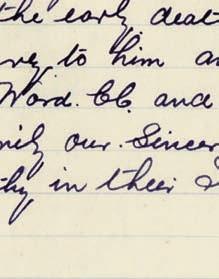 the early deat
to him a
Word. CC. and
our. Sincer
thy in their S